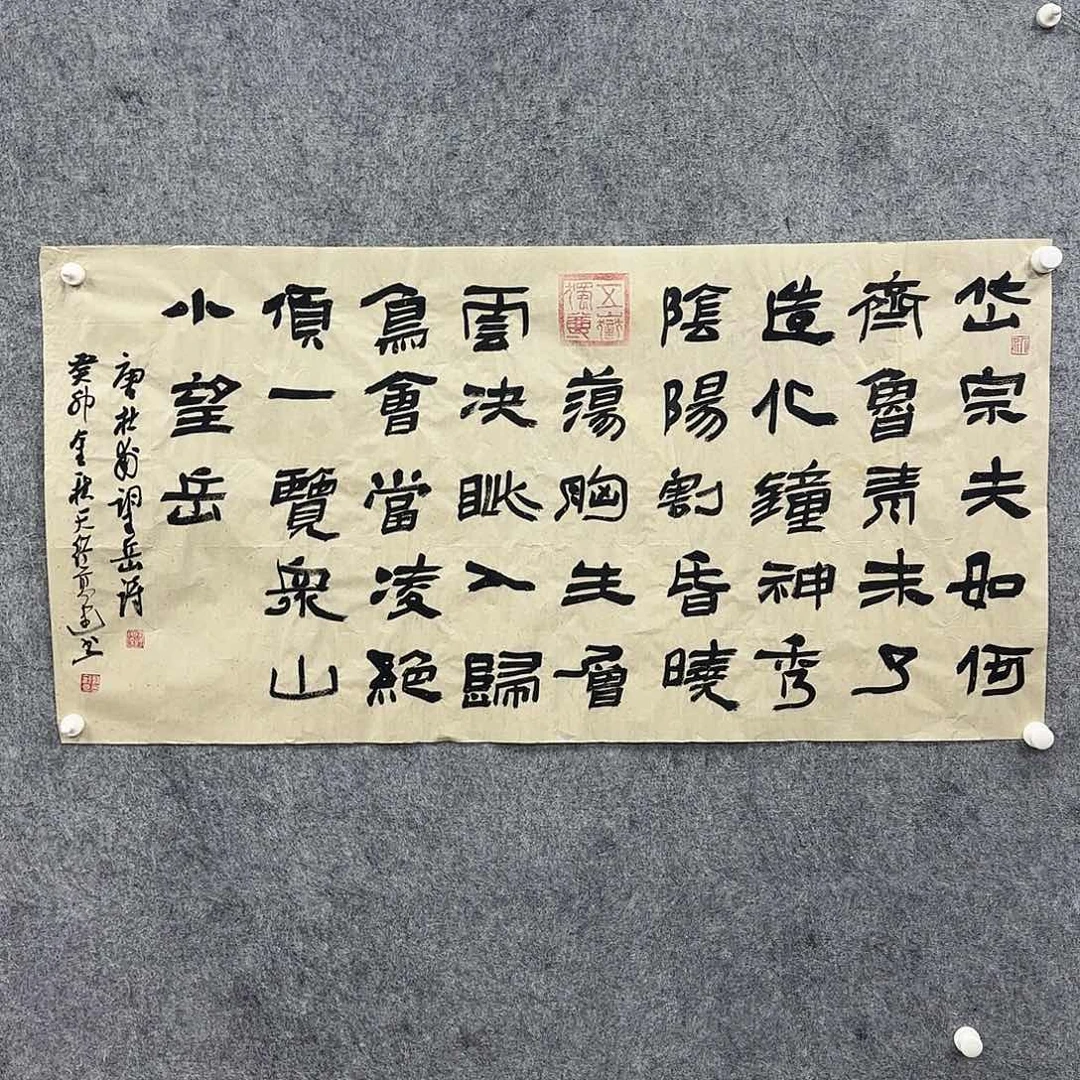 岱宗夫如何
齊魯青未了
造化鐘神秀
陰陽割昏曉
五嶽獨尊
蕩胸生層
雲决眦入歸
鳥會當凌絕
頂一覽衆山
小望岳
唐杜甫望岳詩
癸卯金秋天